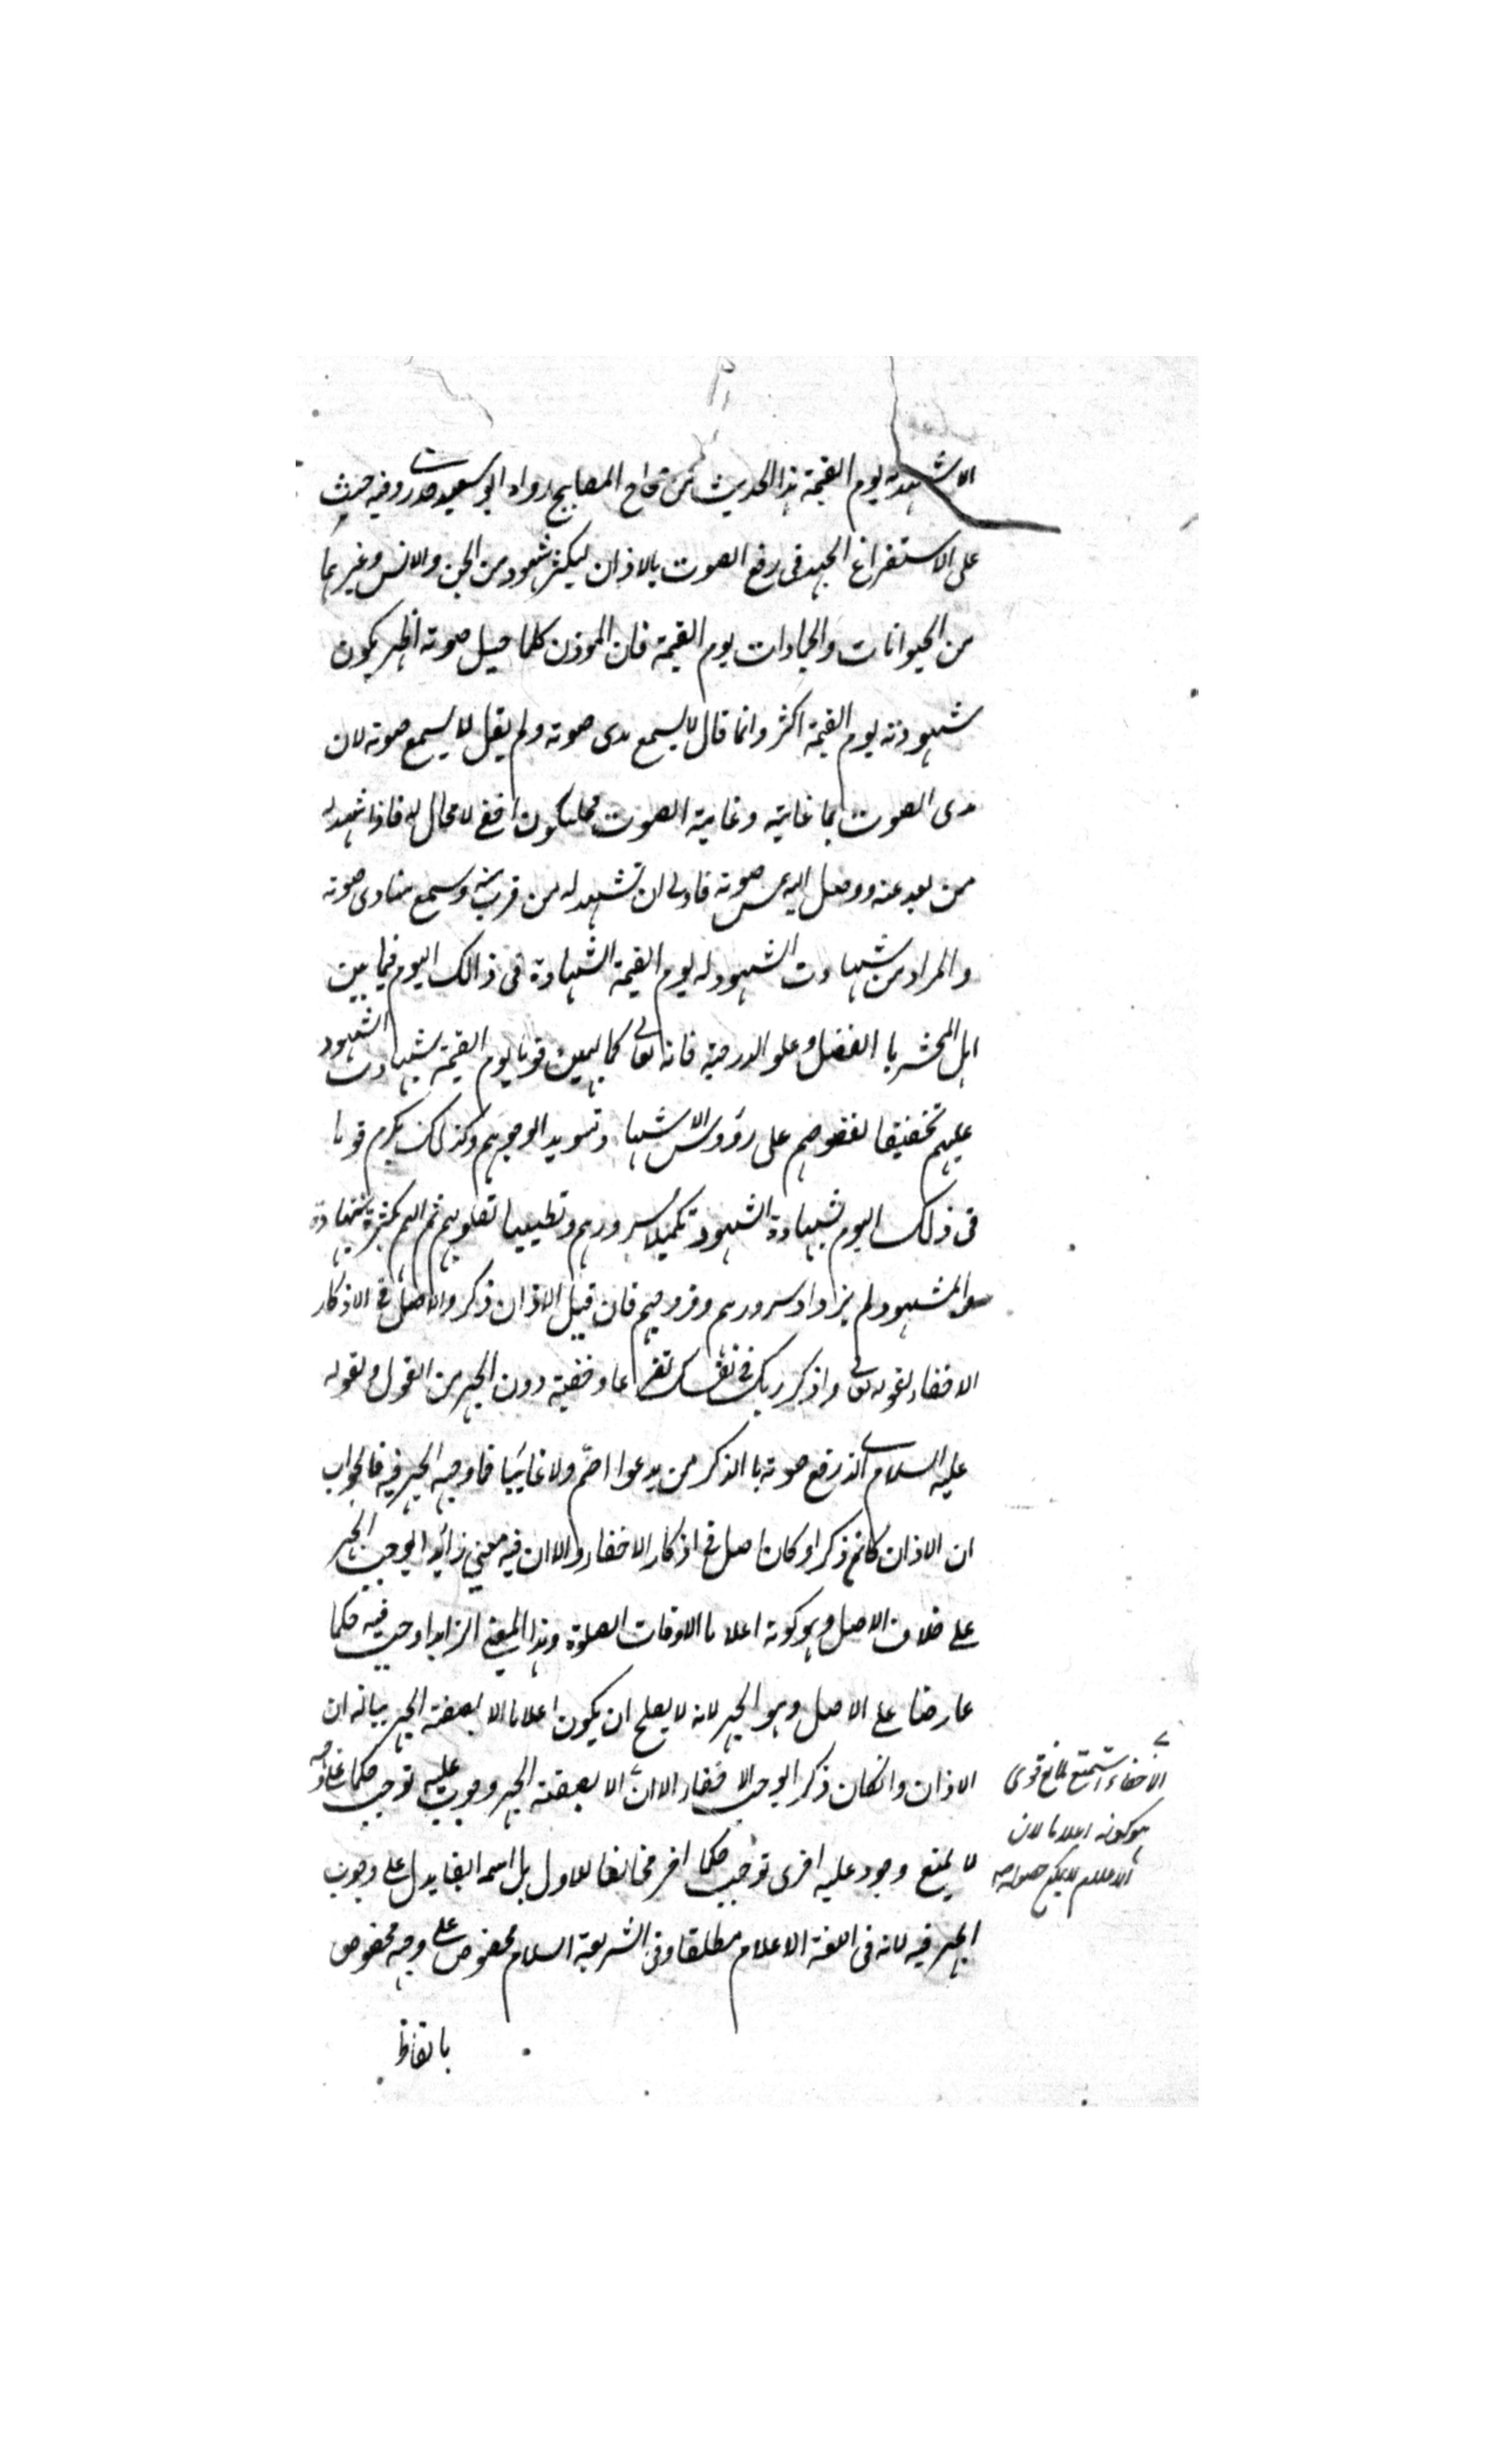 الا شهد له يوم القيمة هذا الحديث من صحاح المصابيح رواه ابو سعيد خدري وفيه حيث
على الاستفراغ الجهد فى رفع الصوت بالاذان ليكثر شهوده من الجن والانس وغيرهما
من الحيوانات والجمادات يوم القيمة فان الموذن كلما صوته اظهر يكون
شهودته يوم القيمة اكثر وانما قال لا يسمع مدى صوته ولم يقل لا يسمع صوته لان
مدى الصوت غايته وغاية الصوت يكون اخفى لا محال له فاذا شهد له
من بعد عنه ووصل اليه صوته فاولى ان تشهد له من قرب منه وسمع منادى صوته
والمراد من شهادت الشهود له يوم القيمة الشهادة فى ذالك اليوم فيما بين
اهل المحشر با الفضل وعلو الدرجة فانه تعالى كما يهين قوما يوم القيمة شهادت الشهود
عليهم تحقيقا لفضوحهم على رؤوس الاشهاد وتسويد الوجوههم وكذلك يكرم قوما
فى ذلك اليوم بشهادة الشهود تكميلا سرورهم وتطييبا لقلوبهم ثم انهم بكثرة شهادة
الشهود لم يزداد سرورهم وفروحهم فان قيل الاذان ذكر والاصل فى الاذكار
الاخفاء لقوله تعالى واذكر ربك فى نفسك تضرعا وخفية دون الجهر من القول ولقوله
عليه السلام الذ رفع صوته با الذكر من يدعوا اصم ولا غائبا فما وجه الجهر فيه فالجواب
ان الاذان كانم ذكرا وكان اصل فى اذكار الاخفاء والا ان فيه معنى زائد ايوجب الجهر
على خلاف الاصل وهو كونه اعلاما لاوقات الصلوة وهذا المعنى الزايد اوجب فيه حكما
عارضا على الاصل وهو الجهر لانه لا يصلح ان يكون اعلاما الا بصفة الجهر بيانه ان
الاذان وانكان ذكرا يوجب الاخفاء الا ان الا بصفة الجهر وجوب عليه توجب حكما
لا يمنع وجود عليه اخرى توجب حكما اخر مخالفا للاول بل اسمه ايضا يدل على وجوب
الجهر فيه لانه فى اللغة الاعلام مطلقا وفى الشريعة السلام مخصوص على وجه مخصوص
بالفاظ
الاخفاء امتنع لمانع قوى
هو كونه اعلاما لان
الاعلام لا يمكن حصوله